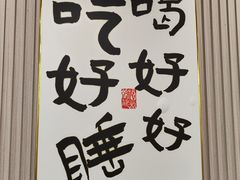 喝好好
吃好睡